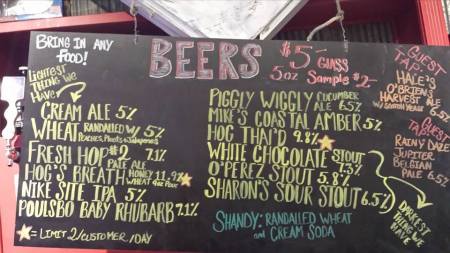 BRING IN ANY
FOOD!
BEERS
$5- GLASS
5oz SAMPLE $2-
LIGHTEST
THING WE
HAVE
CREAM ALE 5%
WHEAT RANDALLED W/ 5%
PEACHES, PLUOTS & Jalapenos
FRESH HOP #9 PALE ALE 7.1%
HOG'S BREATH HONEY WHEAT 4oz POUR 11.9%
NIKE SITE IPA 5%
POULSBO BABY RHUBARB 7.1%
= LIMIT 2/CUSTOMER/DAY
PIGGLY WIGGLY CUCUMBER ALE 6.5%
MIKE'S COASTAL AMBER 5%
HOG THAI'D 9.8%
WHITE CHOCOLATE STOUT
O'PEREZ STOUT 5.8%
SHARON'S SOUR STOUT 6.5%
SHANDY: RANDALLED WHEAT
and CREAM SODA
GUEST
TAP:
HALE'S
O'BRIEN'S
HARVEST
ALE 6.5%
GUEST
TAP:
RAINY DAZE
JUPITER
BELGIAN
PALE 6.5%
DARKEST
THING WE
HAVE